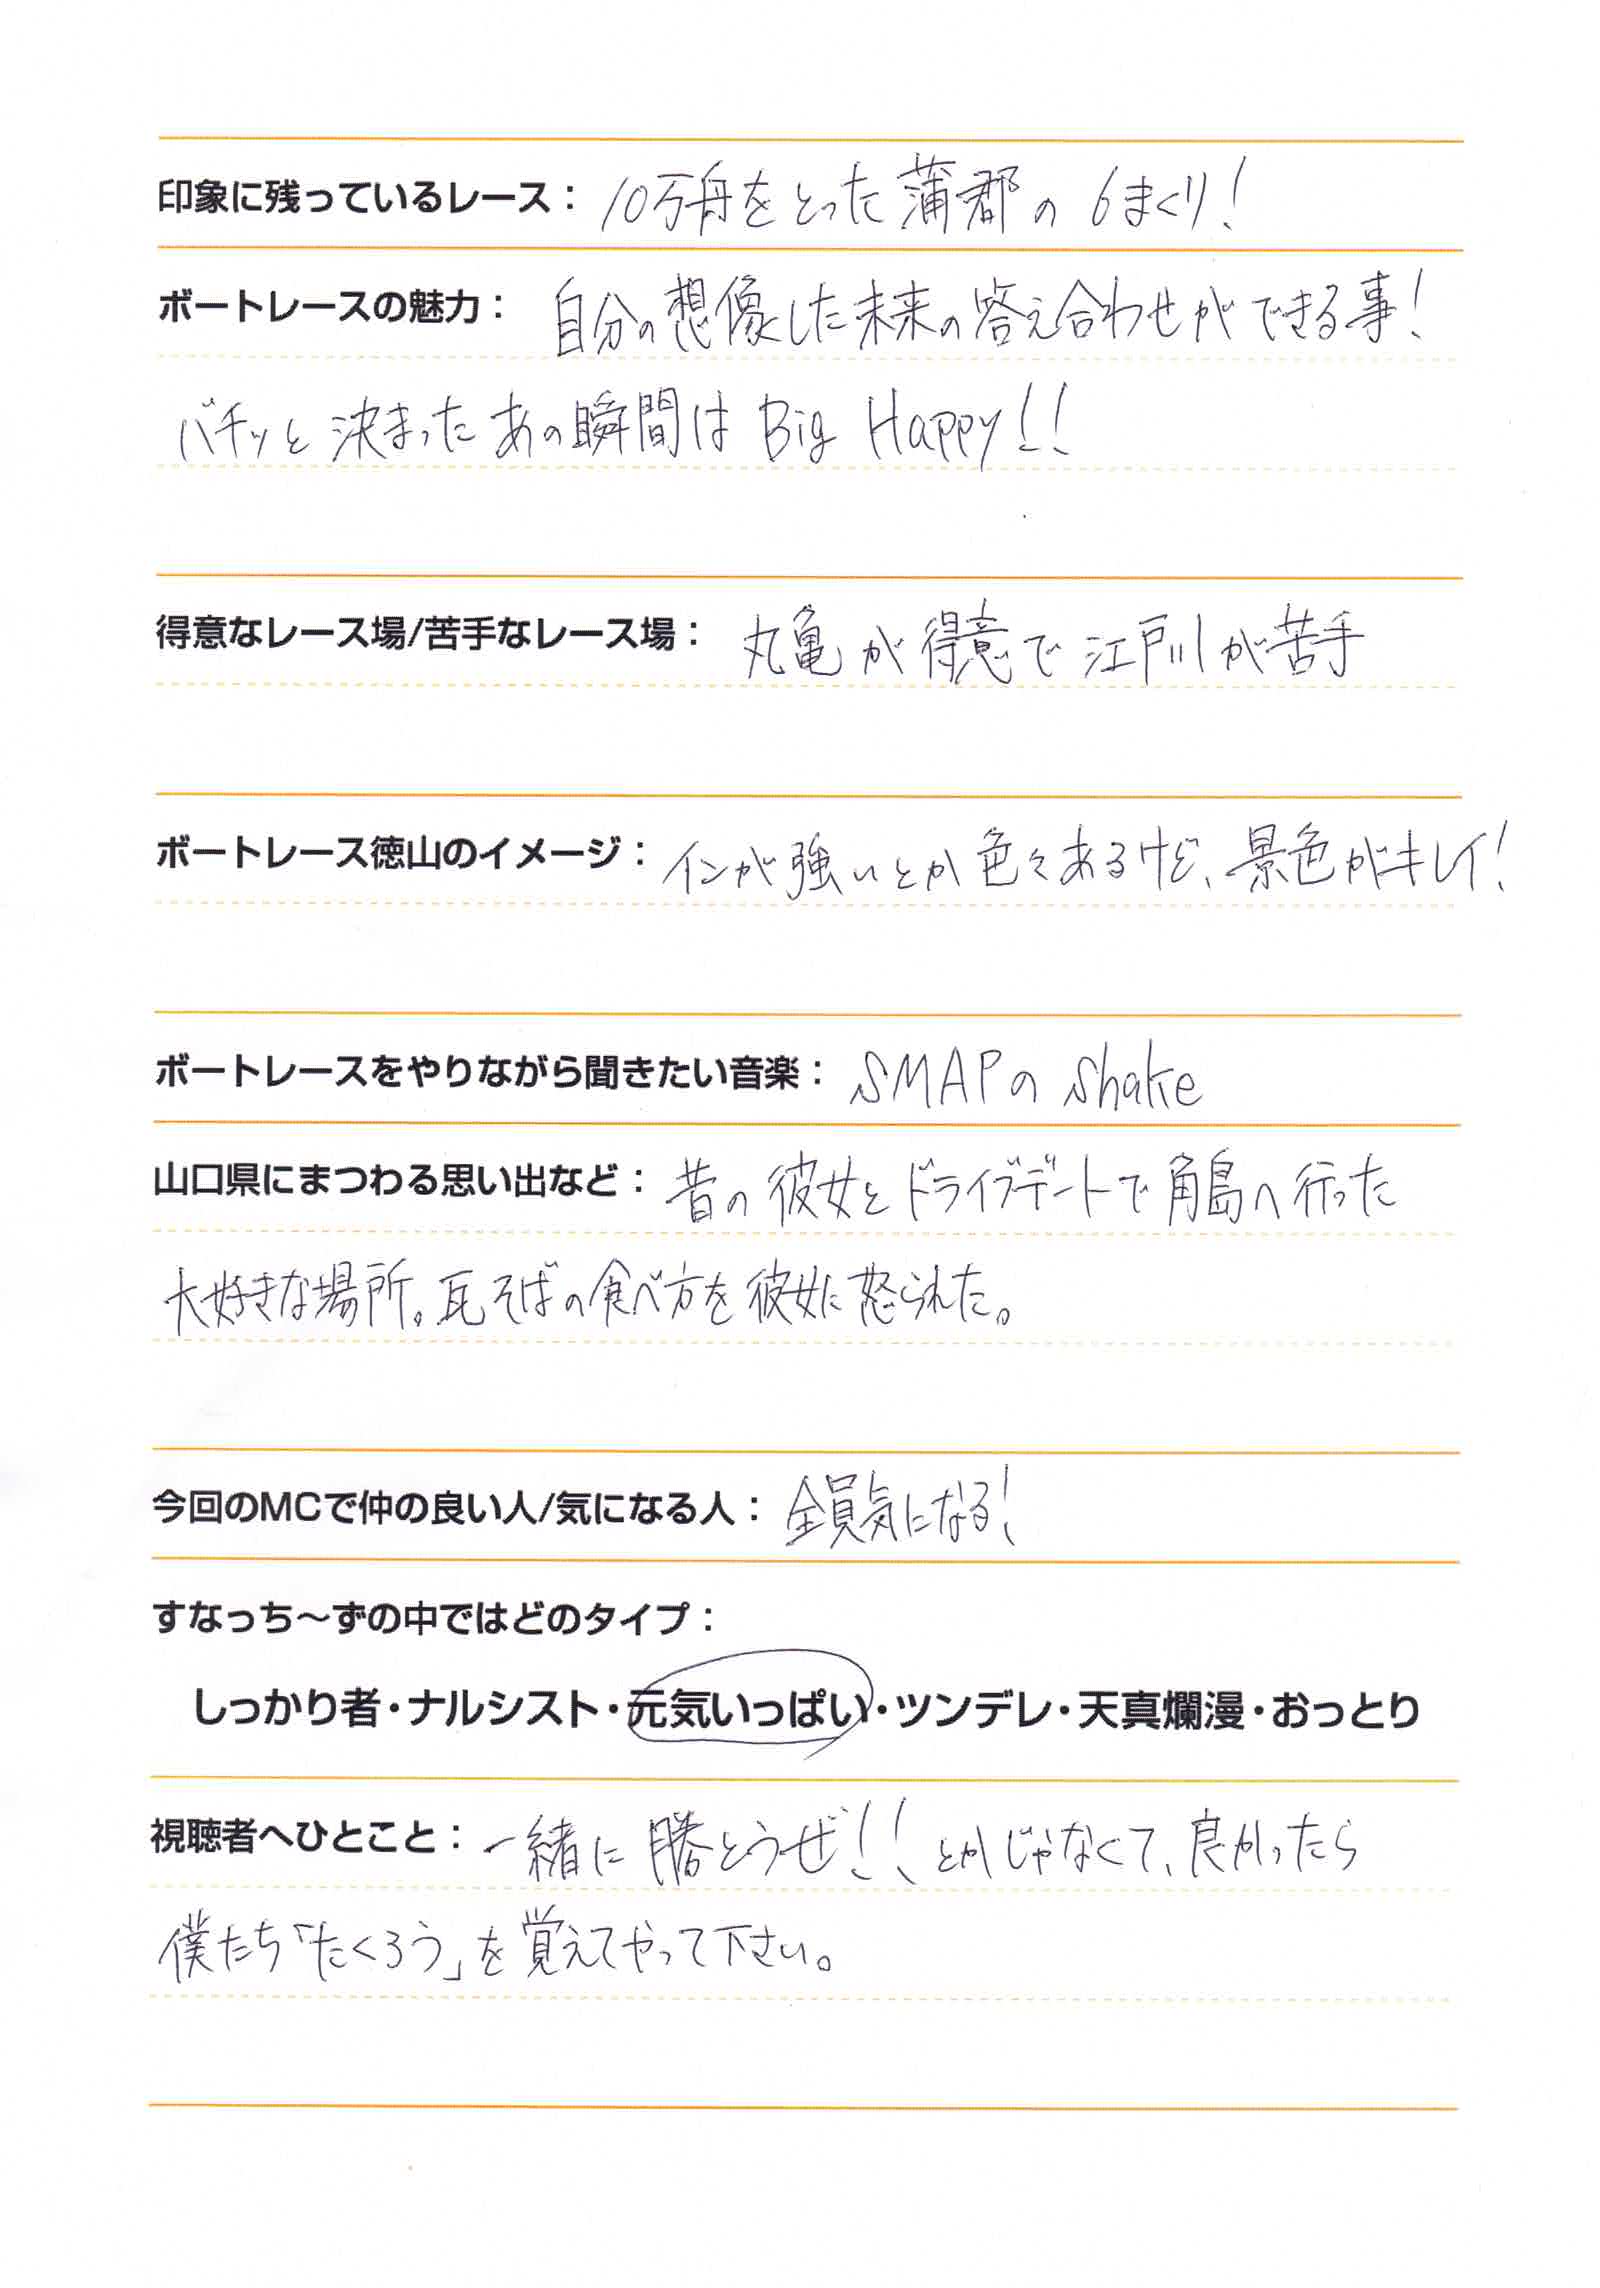 印象に残っているレース：10万舟をとった蒲郡の6まくり！
ボートレースの魅力：自分の想像した未来の答え合わせができる事！
バチッと決まったあの瞬間はBig Happy!!
得意なレース場/苦手なレース場：丸亀が得意で江戸川が苦手
ボートレース徳山のイメージ：インが強いとか色々あるけど、景色がキレイ！
ボートレースをやりながら聞きたい音楽：SMAPのshake
山口県にまつわる思い出など：昔の彼女とドライブデートで角島へ行った
大好きな場所。瓦そばの食べ方を彼女に怒られた。
今回のMCで仲の良い人/気になる人：全員気になる！
すなっち～ずの中ではどのタイプ：
しっかり者・ナルシスト・元気いっぱい・ツンデレ・天真爛漫・おっとり
視聴者へひとこと：一緒に勝とうぜ！！とかじゃなくて、良かったら
僕たち「たくろう」を覚えてやって下さい。